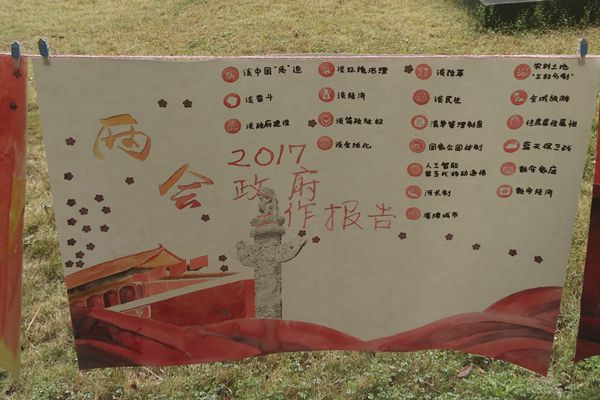 两
会
2017
政府
作报告
谈中国"质"造
谈奋斗
谈政府建设
谈环境治理
谈经济
谈简政放权
谈全球化
谈改革
谈民生
清单管理制度
国家公园体制
人工智能
第五代移动通信
河长制
海绵城市
农村土地
"三权分制"
全域旅游
住房居住属性
蓝天保卫战
数字家庭
数字经济